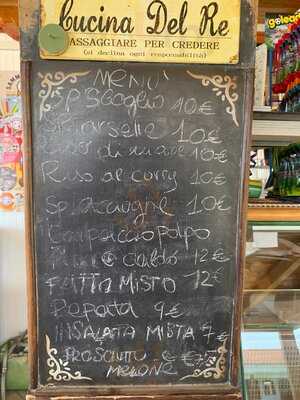 Cucina Del Re
ASSAGGIARE PER CREDERE
(si declina ogni responsabilità)
MENU'
SP. SCOGLIO 10€
10€
di mare 10€
Riso al curry 10€
10€
Carpaccio polpo
caldo 12€
FRITTO MISTO 12€
Pepata 9€
INSALATA MISTA 7€
PROSCIUTTO e €7
MELONE
golea